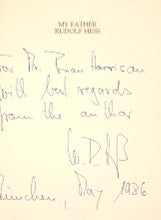 MY FATHER
RUDOLF HESS
For Mr. Brian Harrison
with best regards
from the author
W. R. Heß
München, May 1986